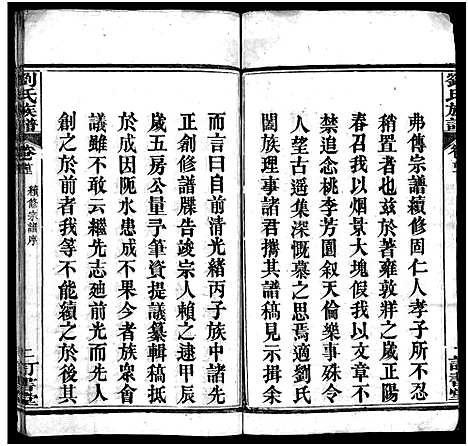 弗傳宗譜續修固仁人孝子所不忍
稍置者也茲於著雍敦牂之歲正陽
春召我以烟景大塊假我以文章不
禁追念桃李芳園叙天倫樂事殊令
人望古遥集深慨慕之思焉適劉氏
閤族理事諸君攜其譜稿見示掛讀
而言曰自前清光緒丙子族中諸先
正創修譜牒告竣宗人賴之逮甲辰
歲五房公量予筆資提議纂輯稿抵
於成因阨水患成不果今者族眾會
議雖不敢云繼先志廸前光而先人
創之於前者我等不能續之於後其
劉氏族譜
卷首
續修宗譜序